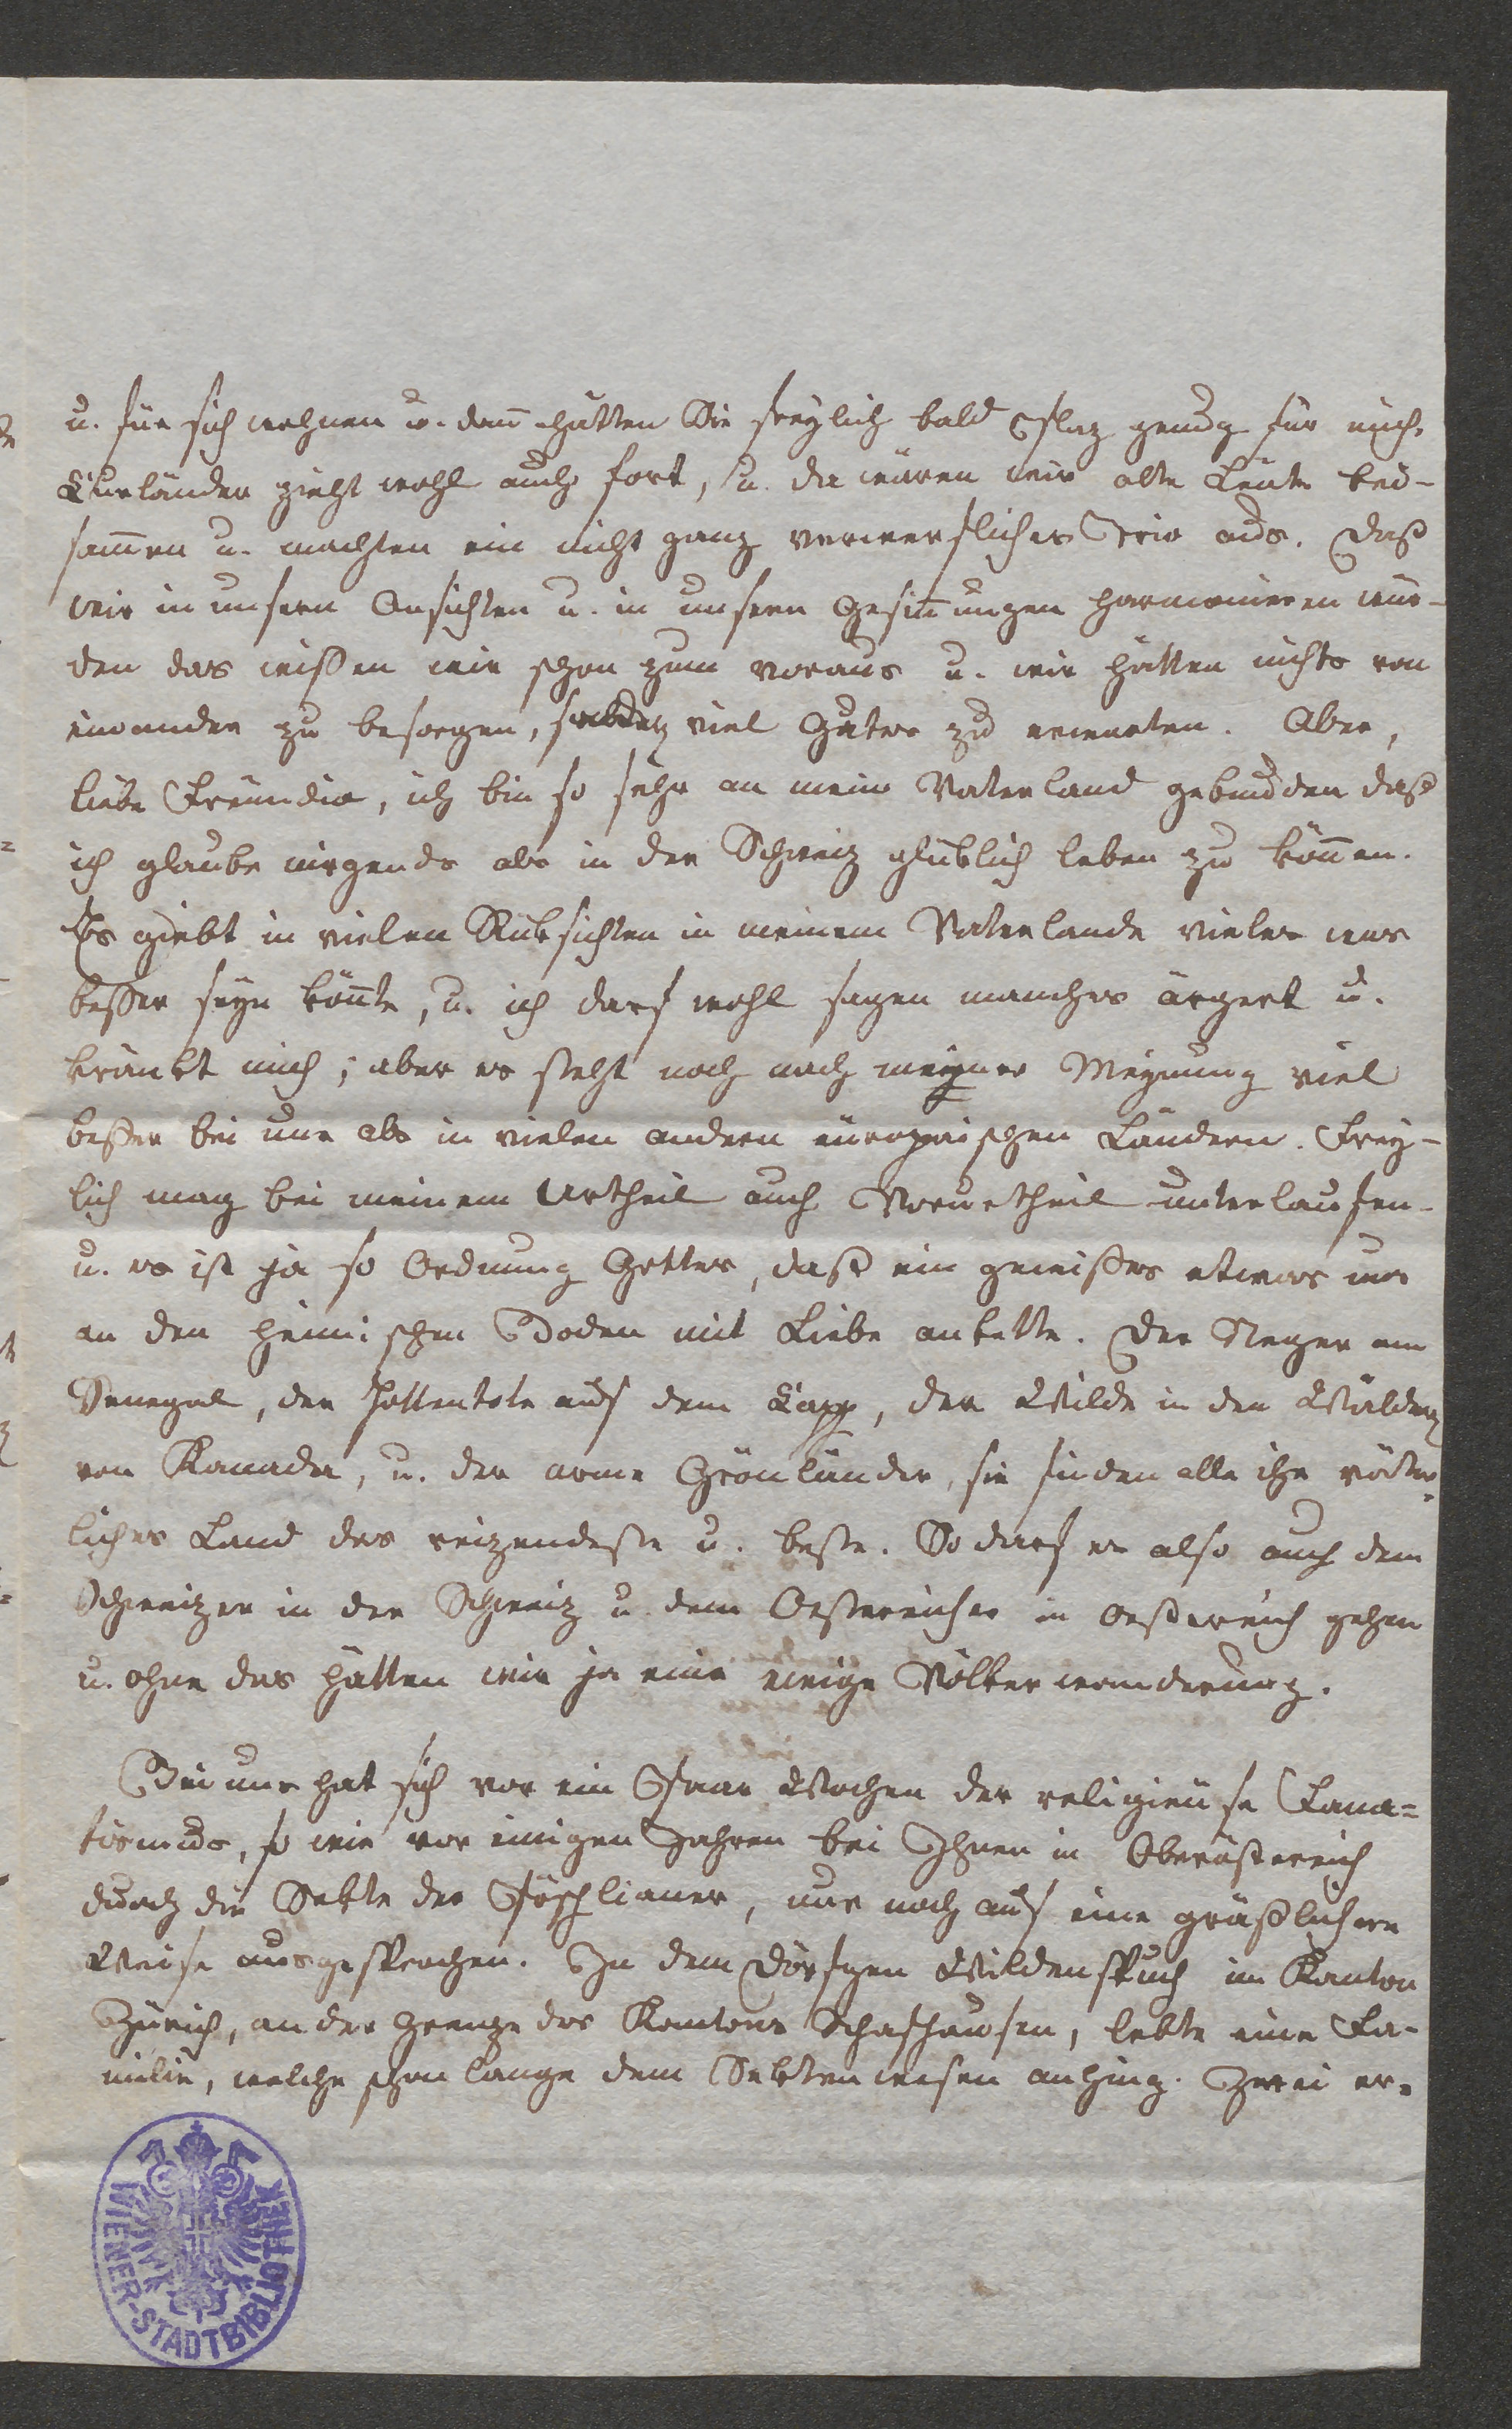 u. für sich wohnen u. dann hätten Sie freylich bald Plaz genug für mich.
Kurländer zieht wohl auch fort, u. da wären wir alte Leute bei-
samen u. machten ein nicht ganz verwerfliches Trio aus. Daß
wir in unsern Ansichten u. in unsern Gesinungen harmonieren wür-
den das wißen wir schon zum voraus u. wir hätten nichts von
einander zu besorgen, sondern viel Gutes zu erwarten. Aber,
liebe Freundin, ich bin so sehr an mein Vaterland gebunden daß
ich glaube nirgends als in der Schweiz glüklich leben zu könen.
Es giebt in vielen Rüksichten in meinem Vaterlande vieles was
beßer seyn könte, u. ich darf wohl sagen manches ärgert u.
kränkt mich; aber es steht noch nach meyner Meynung viel
beßer bei uns als in vielen andern europäischen Ländern. Frey-
lich mag bei meinem Urtheil auch Vorurtheil unterlaufen
u. es ist ja so Ordnung Gottes, daß ein gewißes etwas uns
an den heimischen Boden mit Liebe ankette. Der Neger am
Senegal, der Hottentote auf dem Kapp, der Wilde in den Wäldern
von Kanada, u. der arme Grönländer, sie finden alle ihr väter-
liches Land das reizendeste u. beste. So darf es also auch dem
Schweitzer in der Schweiz u. dem Oesterreicher in Oestreich gehen
u. ohne das hätten wir ja eine ewige Völkerwanderung.
Bei uns hat sich vor ein Paar Wochen der religieuse Fana-
tismus, so wie vor einigen Jahren bei Ihnen in Oberösterreich
durch die Sekte der Pöschlianer, nur noch auf eine gräßlichere
Weise ausgesprochen. In dem Dörfgen Wildenspuch im Kanton
Zürich, an der Grenze des Kantons Schafhausen, lebte eine Fa-
milie, welche schon lange dem Sektenwesen anhing. Zwei er-
WIENER-STADTBIBLIOTHEK